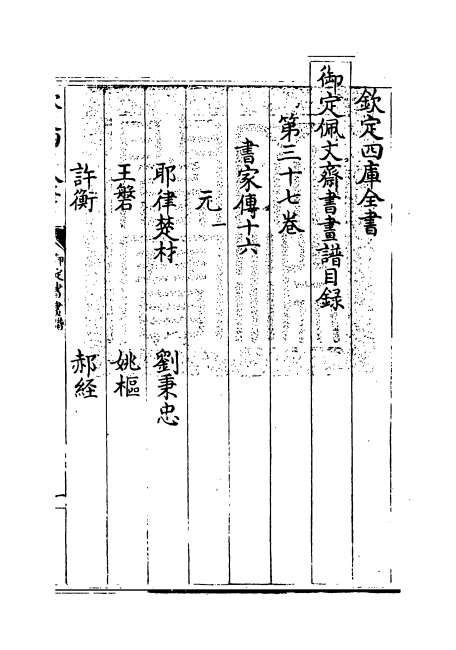 欽定四庫全書
御定佩文齋書畫譜目録
第三十七卷
書家傳十六
元一
耶律楚材 劉秉忠
王磐 姚樞
許衡 郝経